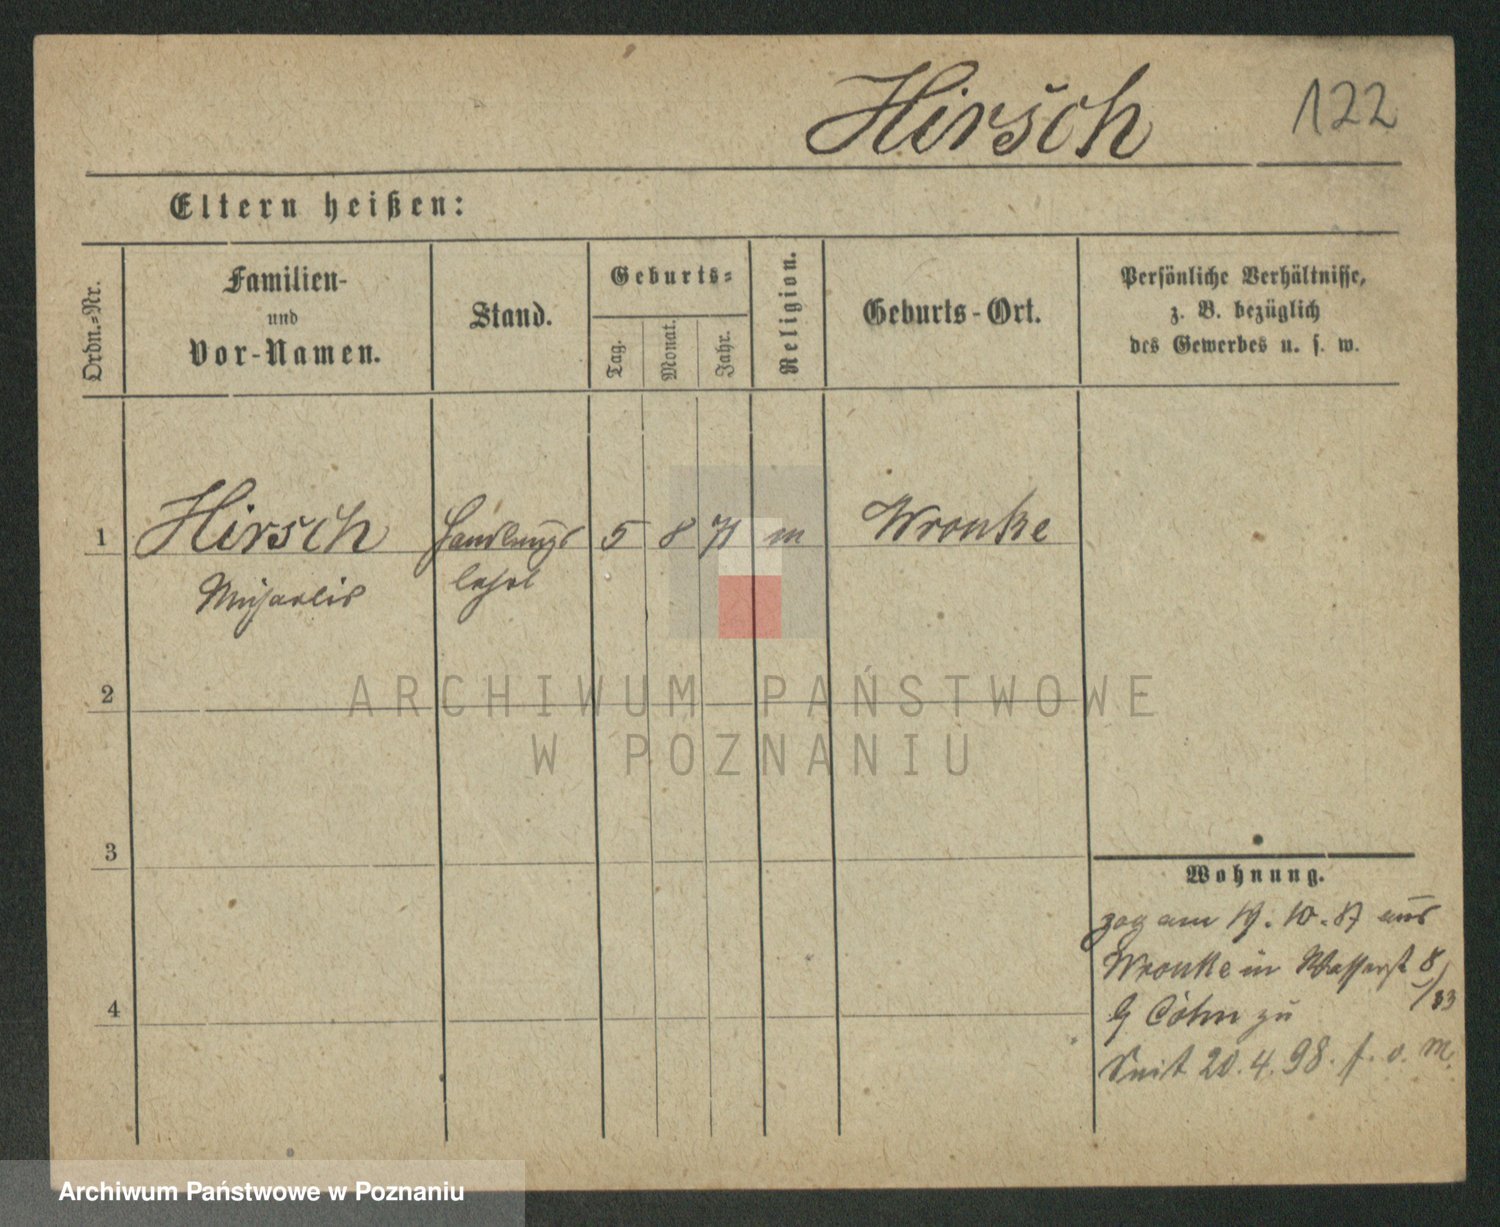 Hirsch 122
Eltern heißen:
Ordn.-Nr.
Familien-
und
Vor-Namen.
Stand.
Geburts-
Tag.
Monat.
Jahr.
Religion.
Geburts-Ort.
Persönliche Verhältnisse,
z. B. bezüglich
des Gewerbes u. s. w.
1 Hirsch Handlungs 5 8 71 m Wronke
lehrl
2
3
4
ARCHIWUM PAŃSTWOWE
W POZNANIU
Wohnung.
zog am 19. 10. 87 aus
Wronke in Wasserst 8/
83
Cohn zu
Seit 20. 4. 98. f. o. M.
Archiwum Państwowe w Poznaniu